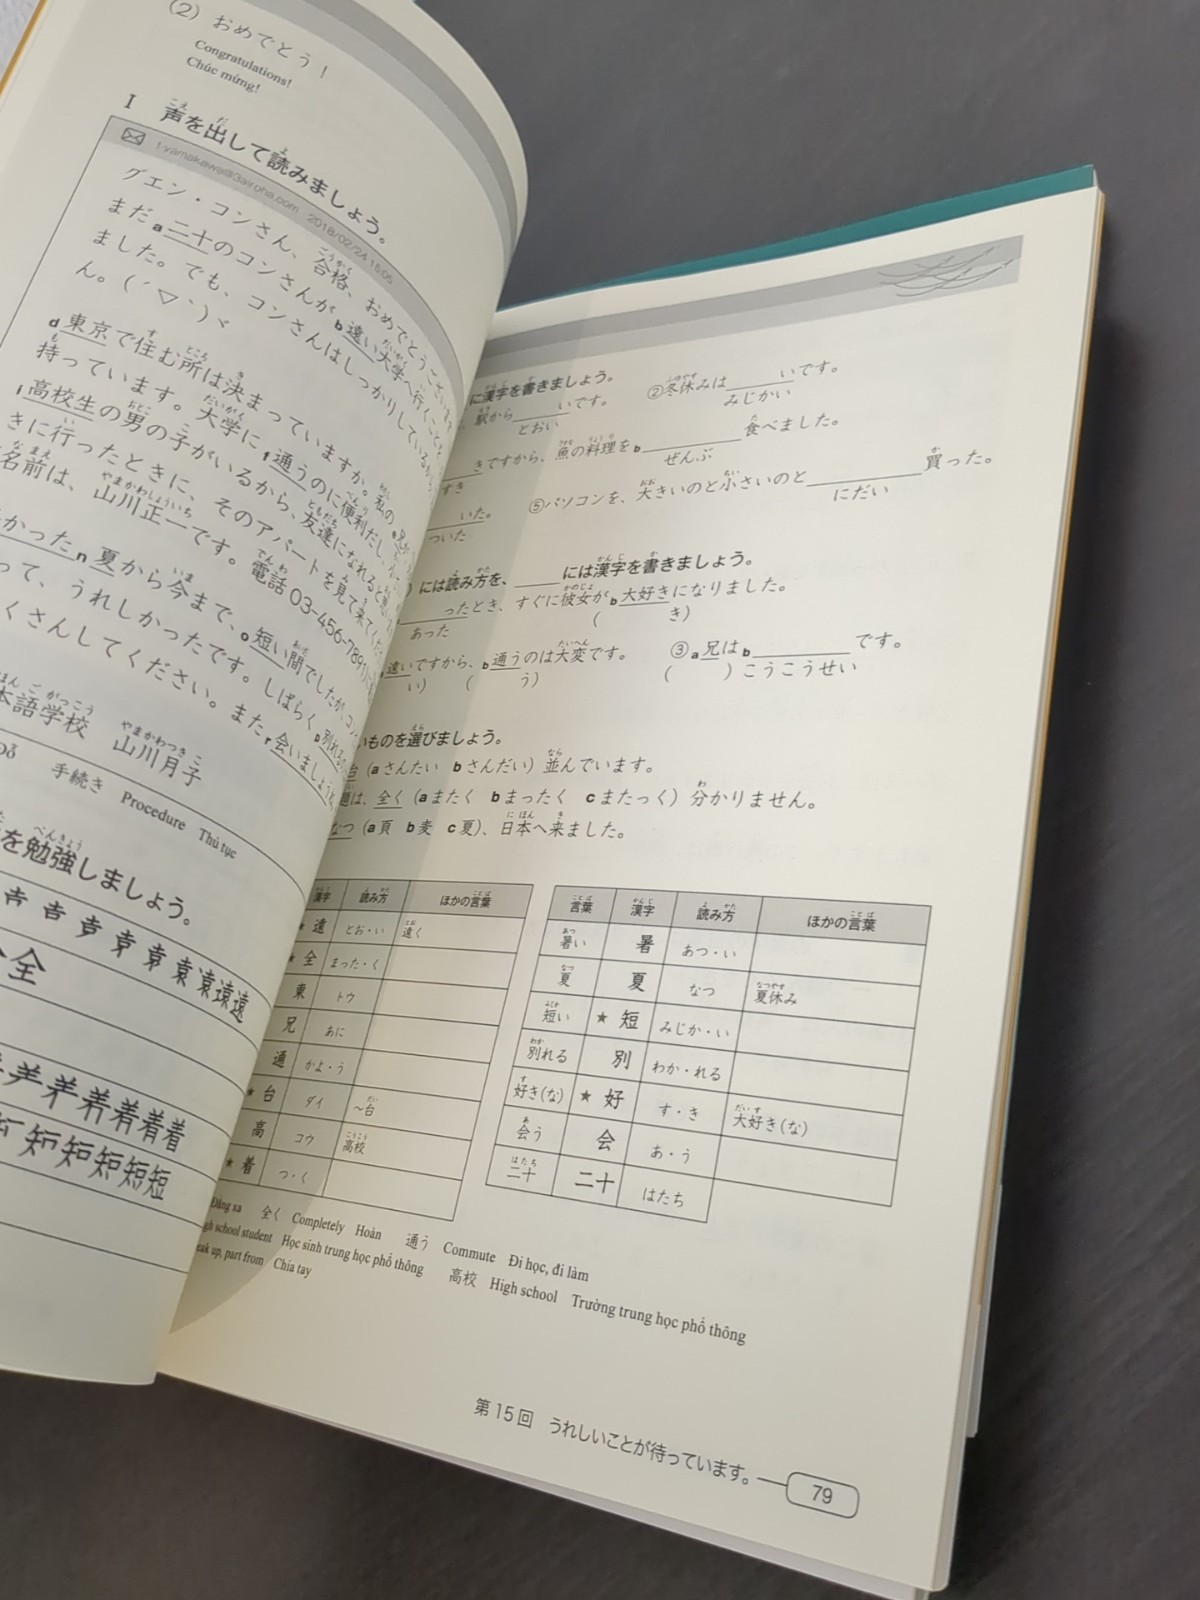 (2) おめでとう！
Congratulations!
Chúc mừng!
I 声を出して読みましょう。
t-yamakawa@3airoha.com 2018/02/24 15:05
グエン・コンさん、合格、おめでとうござい
まだa二十のコンさんがb遠い大学へ行くことを
ました。でも、コンさんはしっかりしているから
ん。(´▽｀)ヾ
d東京で住む所は決まっていますか。私の
持っています。大学にf通うのに便利だし、
i高校生の男の子がいるから、友達になれると思い
きに行ったときに、そのアパートを見て来てくだ
名前は、山川正一です。電話03-456-7891
かったn夏から今まで、o短い間でしたが、コン
って、うれしかったです。しばらくp別れるの
くさんしてください。またr会いましょう
本語学校 山川月子
手続き Procedure Thủ tục
を勉強しましょう。
全
着着着着
知知短短短
に漢字を書きましょう。
駅から______いです。
とおい
②冬休みは______いです。
みじかい
きですから、魚の料理をb______食べました。
すき ぜんぶ
いた。
ついた
⑤パソコンを、大きいのと小さいのと______買った。
にだい
)には読み方を、____には漢字を書きましょう。
ったとき、すぐに彼女がb大好きになりました。
あった ( き)
遠いですから、b通うのは大変です。
い) ( う)
③a兄はb______です。
( ) こうこうせい
いものを選びましょう。
台 (aさんたい bさんだい) 並んでいます。
題は、全く (aまたく bまったく cまたっく) 分かりません。
なつ (a頁 b麦 c夏)、日本へ来ました。
漢字 読み方 ほかの言葉
★遠 とお・い 遠く
★全 まった・く
東 トウ
兄 あに
通 かよ・う
★台 ダイ ～台
高 コウ 高校
★着 つ・く
言葉 漢字 読み方 ほかの言葉
暑い 暑 あつ・い
夏 夏 なつ 夏休み
短い ★短 みじか・い
別れる 別 わか・れる
好き(な) ★好 す・き 大好き(な)
会う 会 あ・う
二十 二十 はたち
Đằng xa 全く Completely Hoàn 通う Commute Đi học, đi làm
gh school student Học sinh trung học phổ thông 高校 High school Trường trung học phổ thông
eak up, part from Chia tay
第15回 うれしいことが待っています。
79